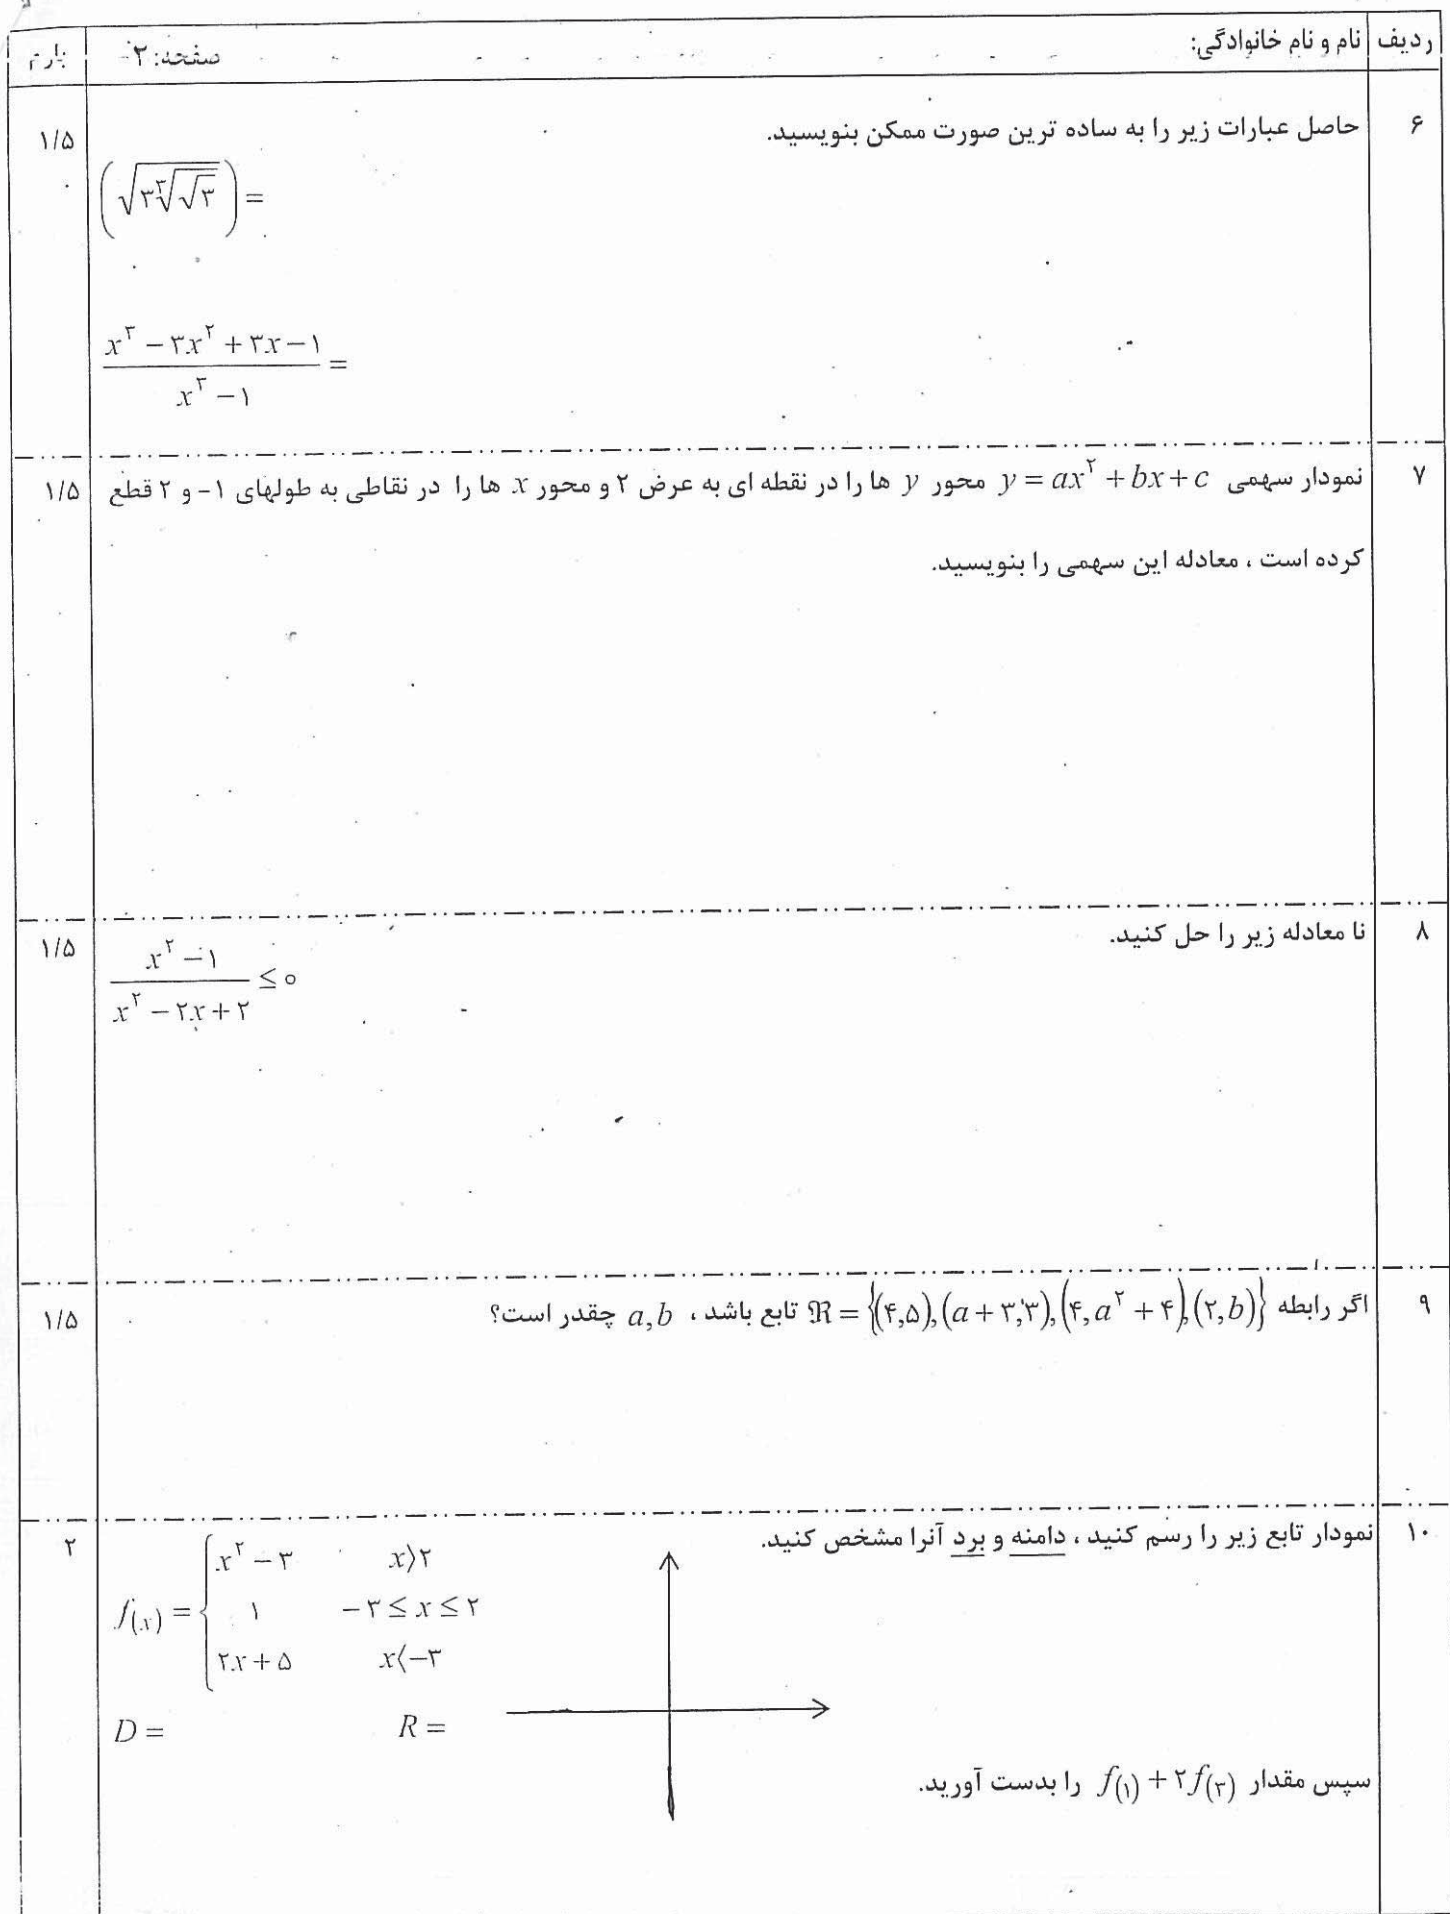 ردیف نام و نام خانوادگی: صفحه: ۲ بارم
۶ حاصل عبارات زیر را به ساده ترین صورت ممکن بنویسید. ۱/۵
(√(۳∛(√۳))) =
(x^۳ − ۳x^۲ + ۳x − ۱) / (x^۳ − ۱) =
۷ نمودار سهمی y = ax^۲ + bx + c محور y ها را در نقطه ای به عرض ۲ و محور x ها را در نقاطی به طولهای ۱- و ۲ قطع ۱/۵
کرده است ، معادله این سهمی را بنویسید.
۸ نا معادله زیر را حل کنید. ۱/۵
(x^۲ − ۱) / (x^۲ − ۲x + ۲) ≤ ۰
۹ اگر رابطه ℜ = {(۴,۵),(a+۳,۳),(۴,a^۲+۴),(۲,b)} تابع باشد ، a,b چقدر است؟ ۱/۵
۱۰ نمودار تابع زیر را رسم کنید ، دامنه و برد آنرا مشخص کنید. ۲
x^۲ − ۳ x⟩۲
f(x) = { ۱ −۳ ≤ x ≤ ۲
۲x + ۵ x⟨−۳
D = R =
سپس مقدار f(۱) + ۲f(۳) را بدست آورید.